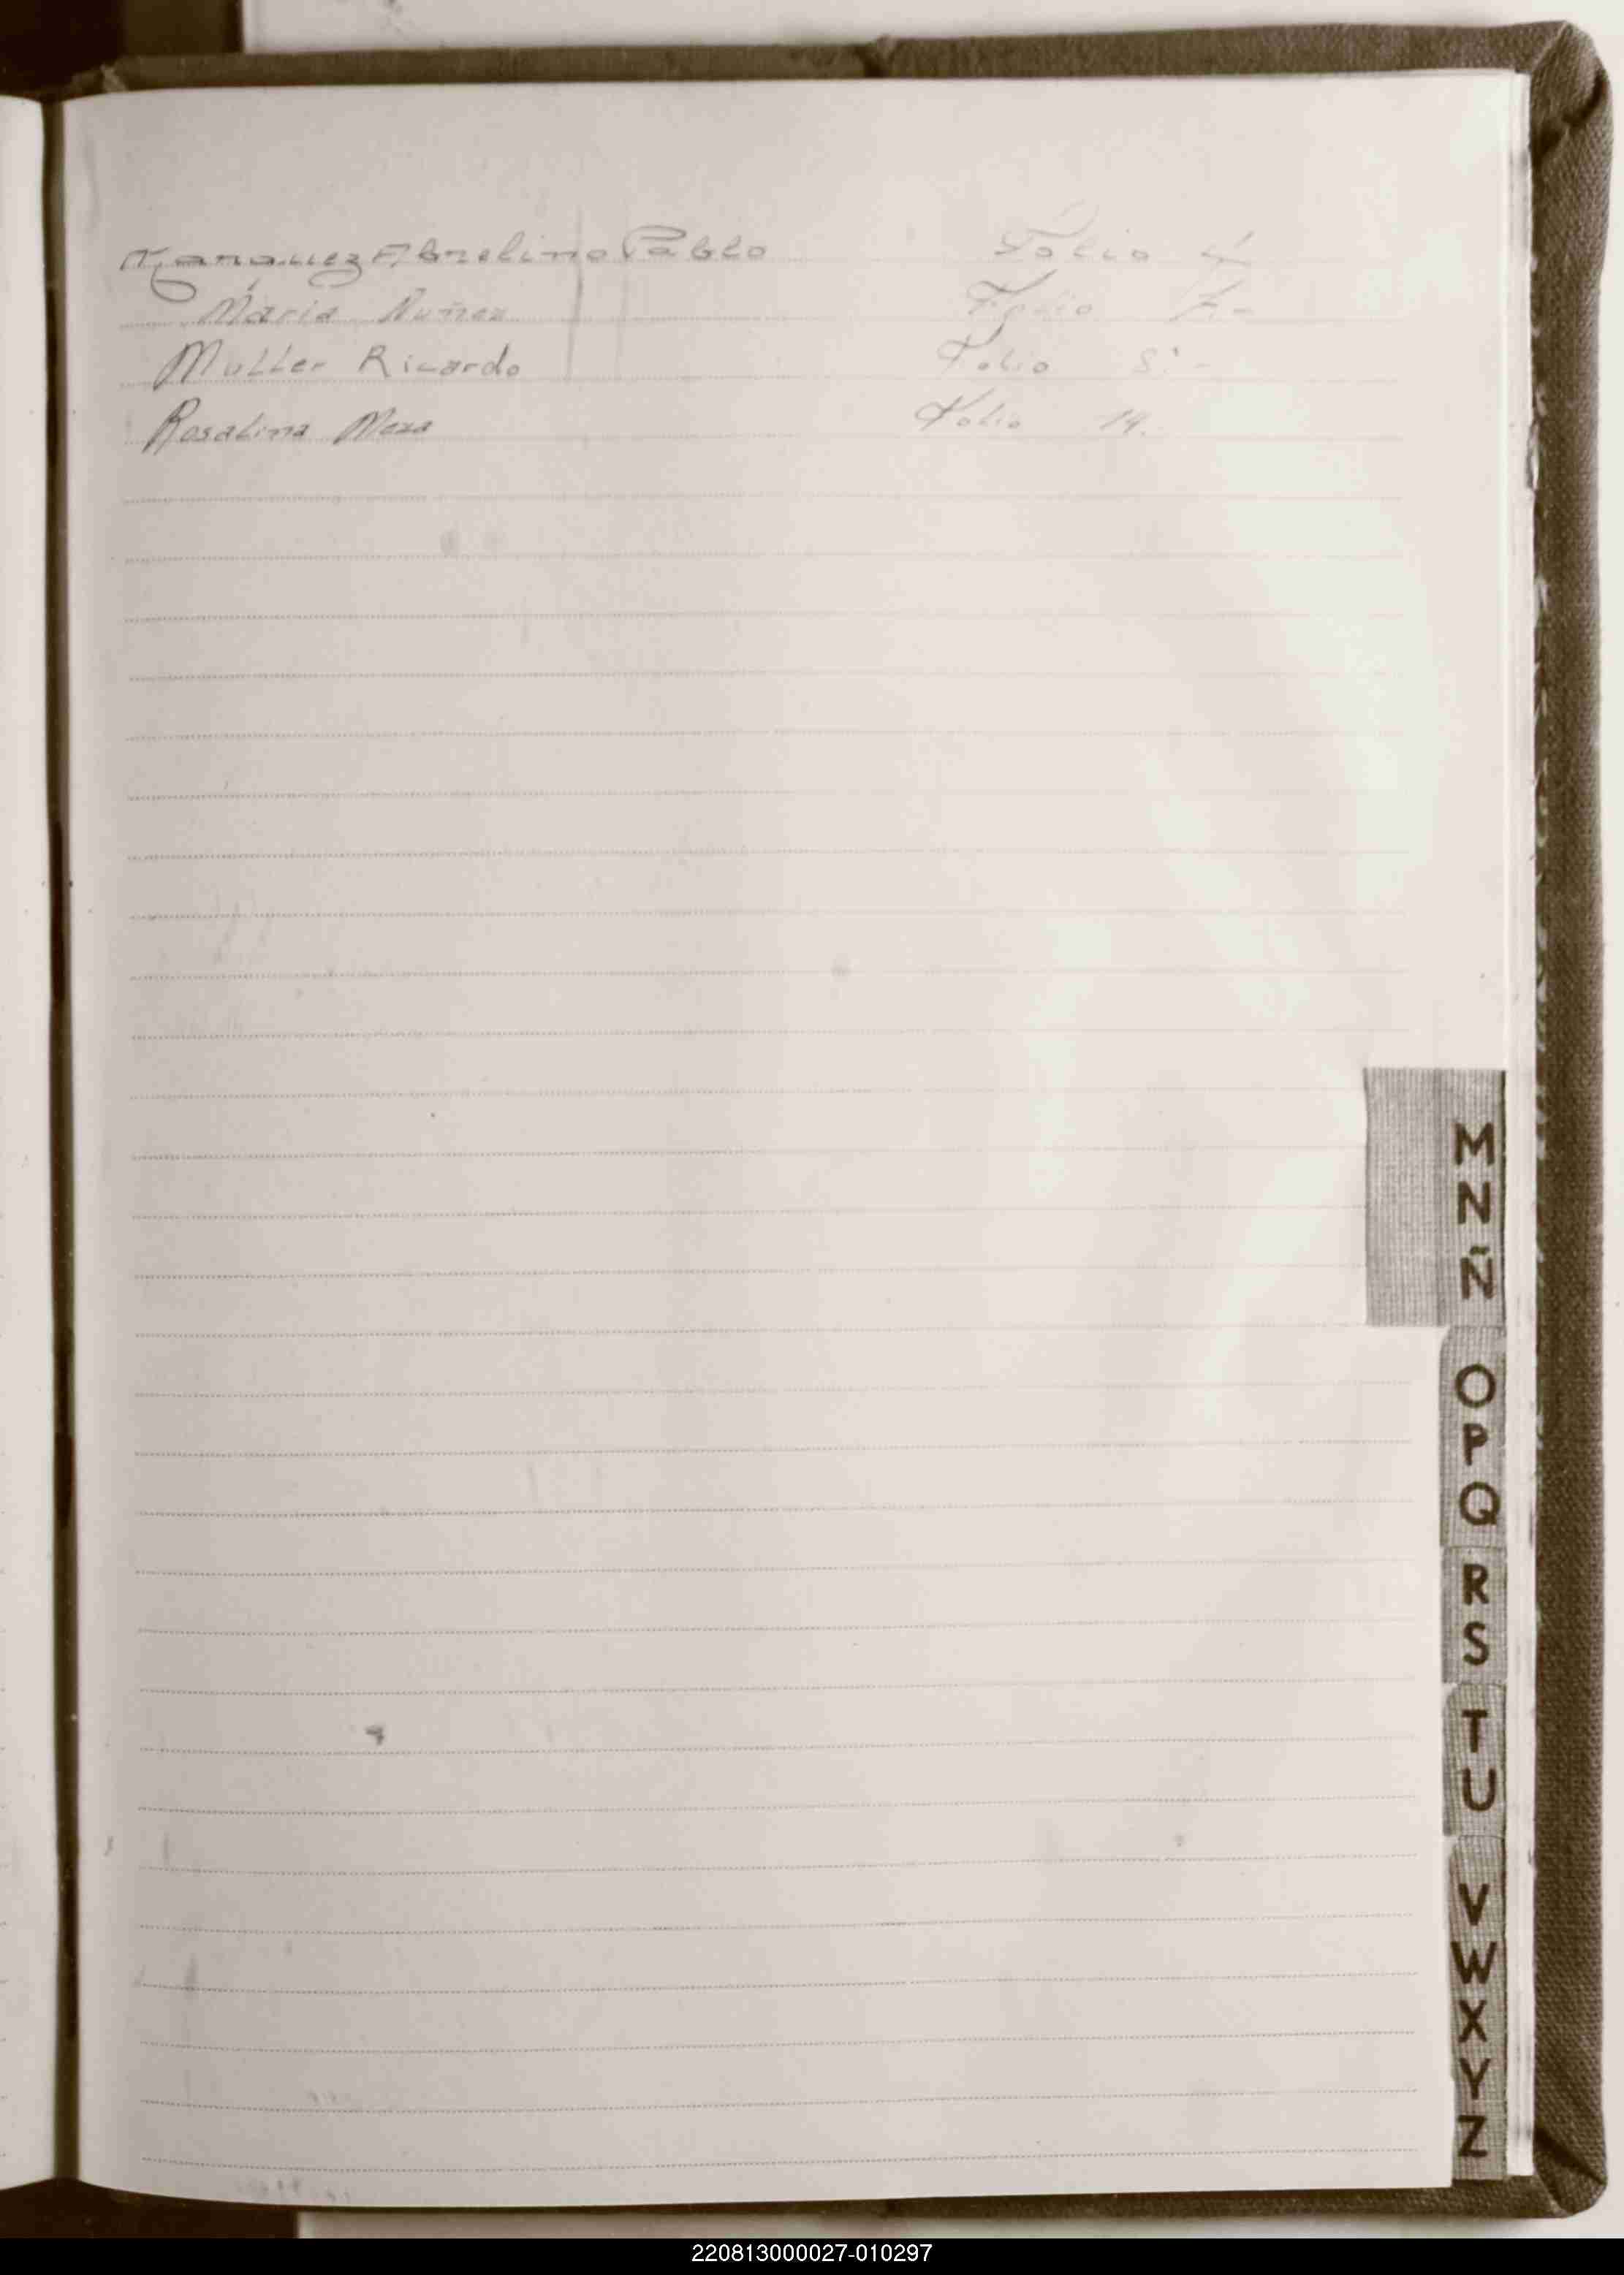 Marquez Abrelino Pablo Folio 4
Maria Nuñez Folio 7.-
Muller Ricardo Folio 8.-
Rosalina Meza Folio 14.
M
N
Ñ
O
P
Q
R
S
T
U
V
W
X
Y
Z
220813000027-010297